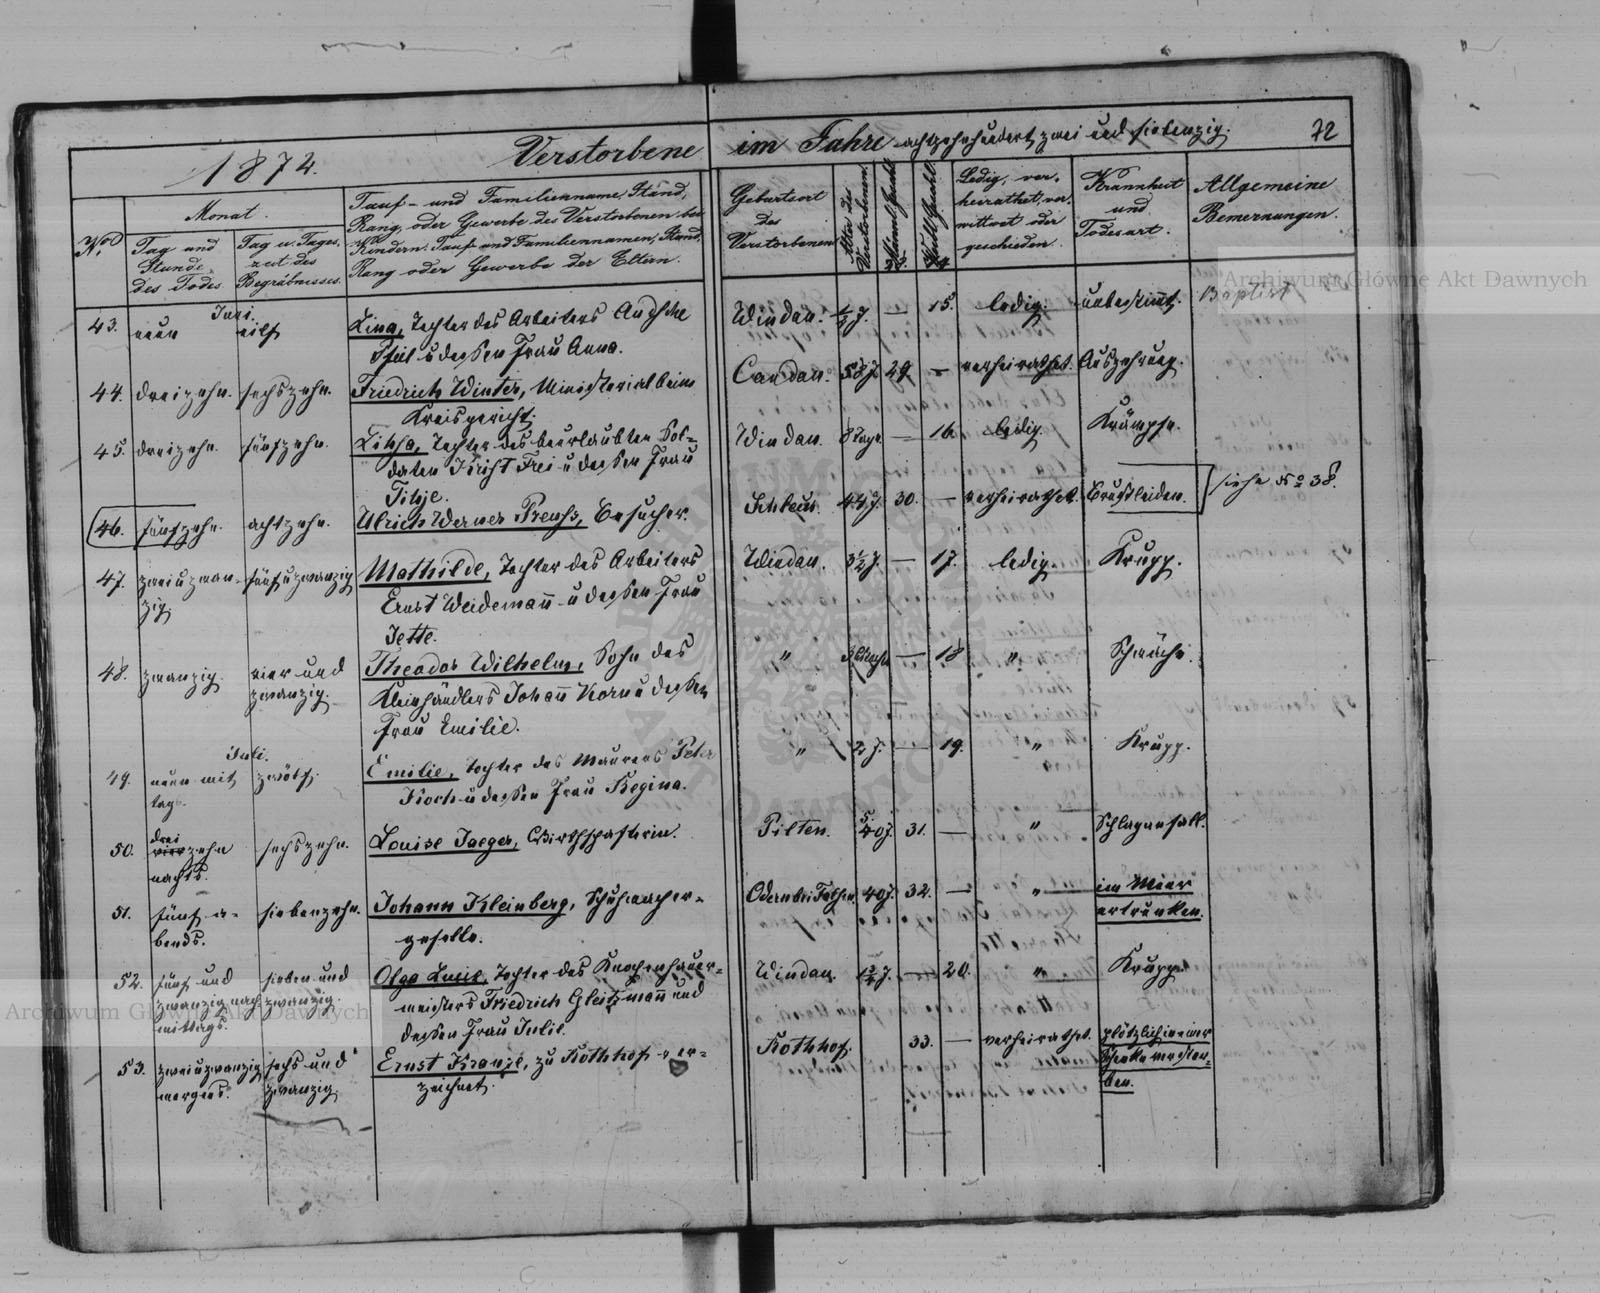 1872.
Verstorbene im Jahre achtzehnhundert zwei und siebenzig.
72
No.
Monat.
Tag und
Stunde
des Todes
Tag u. Tages-
zeit des
Begräbnisses.
Tauf- und Familienname, Stand,
Rang, oder Gewerbe des Verstorbenen bei
Kindern. Tauf und Familiennamen, Stand,
Rang oder Gewerbe der Eltern.
Geburtsort
des
Verstorbenen
Alter des
Verstorbenen
Ledig, ver-
heirathet, ver-
wittwet oder
geschieden.
Krankheit
und
Todesart.
Allgemeine
Bemerkungen.
Juni.
43. neun eilf Lina, Tochter des Arbeiters
Pfeil u dessen Frau Anna.
Windau. ½ J. — 15. ledig. unbestimt. Baptist
44. dreizehn. sechszehn. Friedrich Winter, Ministerial beim
Kreisgericht.
Candau. 58 J. 29 — verheirathet. Auszehrung.
45. dreizehn. fünfzehn. Tochter des beurlaubten Sol-
daten Frei u dessen Frau
Windau. 8 Tage — 16. ledig. Krämpfe.
46. fünfzehn. achtzehn. Ulrich Werner Preuss,
44 J. 30. — verheirathet. Brustleiden. siehe No 38.
47. zwei u zwan-
zig fünf u zwanzig Mathilde, Tochter des Arbeiters
Ernst Weidemañ u dessen Frau
Jette.
Windau. 3½ J. — 17. ledig. Krupp.
48. zwanzig. vier und
zwanzig. Theodor Wilhelm, Sohn des
Kleinhändlers Johañ Korn u dessen
Frau Emilie.
" — 18 " Schwäche.
Juli.
49. neun mit
tags. zwölf. Emilie, Tochter des Maurers Peter
Koch u dessen Frau Regina.
" 2 J. — 19. " Krupp.
50. drei
vierzehn
nachts. sechszehn. Louise Jaeger, Wirthschafterin.
Pilten. 31. — " Schlaganfall.
51. fünf a-
bends. siebenzehn. Johann Kleinberg, Schuhmacher-
geselle.
40 J. 32. — " im Meier
ertrunken.
52. fünf und
zwanzig nach
mittags. sieben und
zwanzig. Olga Lucie, Tochter des Knochenhauer-
meisters Friedrich Gleitzmañ und
dessen Frau Julie.
Windau. — 20. " Krupp.
53. zwei u zwanzig
morgens. sechs und
zwanzig Ernst Kranze, zu Kothhof ver-
zeichnet.
Kothhof. 33. — verheirathet. plötzlich in einer
Schenke verstor-
ben.
Archiwum Główne Akt Dawnych
Archiwum Główne Akt Dawnych